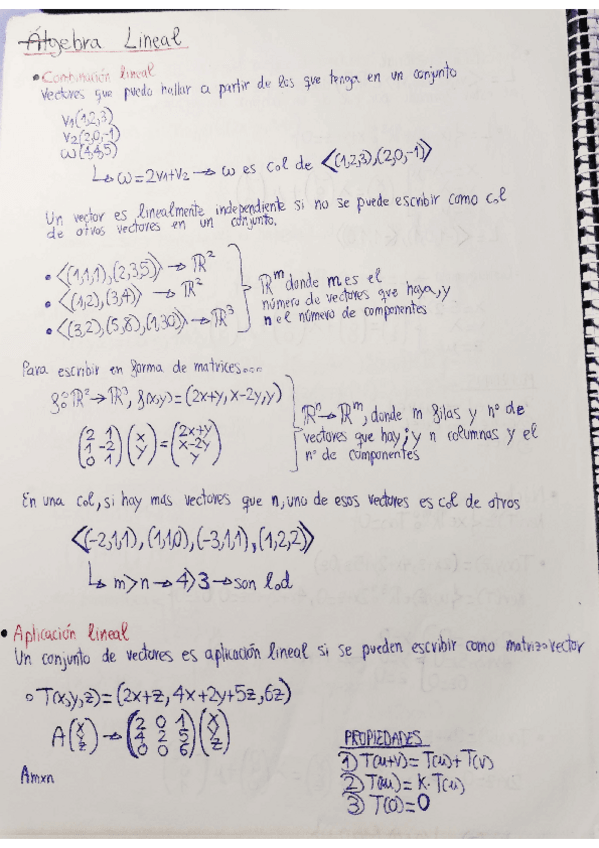 Álgebra Lineal
• Combinación lineal
Vectores que puedo hallar a partir de los que tenga en un conjunto
V1(1,2,3)
V2(2,0,-1)
ω(4,4,5)
↳ ω=2V1+V2 → ω es c.l de <(1,2,3),(2,0,-1)>
Un vector es linealmente independiente si no se puede escribir como c.l
de otros vectores en un conjunto.
• <(1,1,1),(2,3,5)> → ℝ²
• <(1,2),(3,4)> → ℝ²
• <(3,2),(5,8),(1,30)> → ℝ³
ℝᵐ donde m es el
número de vectores que haya, y
n el número de componentes
Para escribir en forma de matrices...
f: ℝ² → ℝ³, f(x,y)=(2x+y, x-2y, y)
(2 1) (x) = (2x+y)
(1 -2) (y) (x-2y)
(0 1) (y)
ℝⁿ → ℝᵐ, donde m filas y nº de
vectores que hay; y n columnas y el
nº de componentes
En una c.l, si hay mas vectores que n, uno de esos vectores es c.l de otros
<(-2,1,1), (1,1,0), (-3,1,1), (1,2,2)>
↳ m>n → 4>3 → son l.d
• Aplicación lineal
Un conjunto de vectores es aplicación lineal si se pueden escribir como matriz·vector
∘ T(x,y,z)=(2x+z, 4x+2y+5z, 6z)
A (x) → (2 0 1) (x)
(y) (4 2 5) (y)
(z) (0 0 6) (z)
Amxn
PROPIEDADES
① T(u+v)= T(u)+T(v)
② T(ku)= K·T(u)
③ T(0)=0